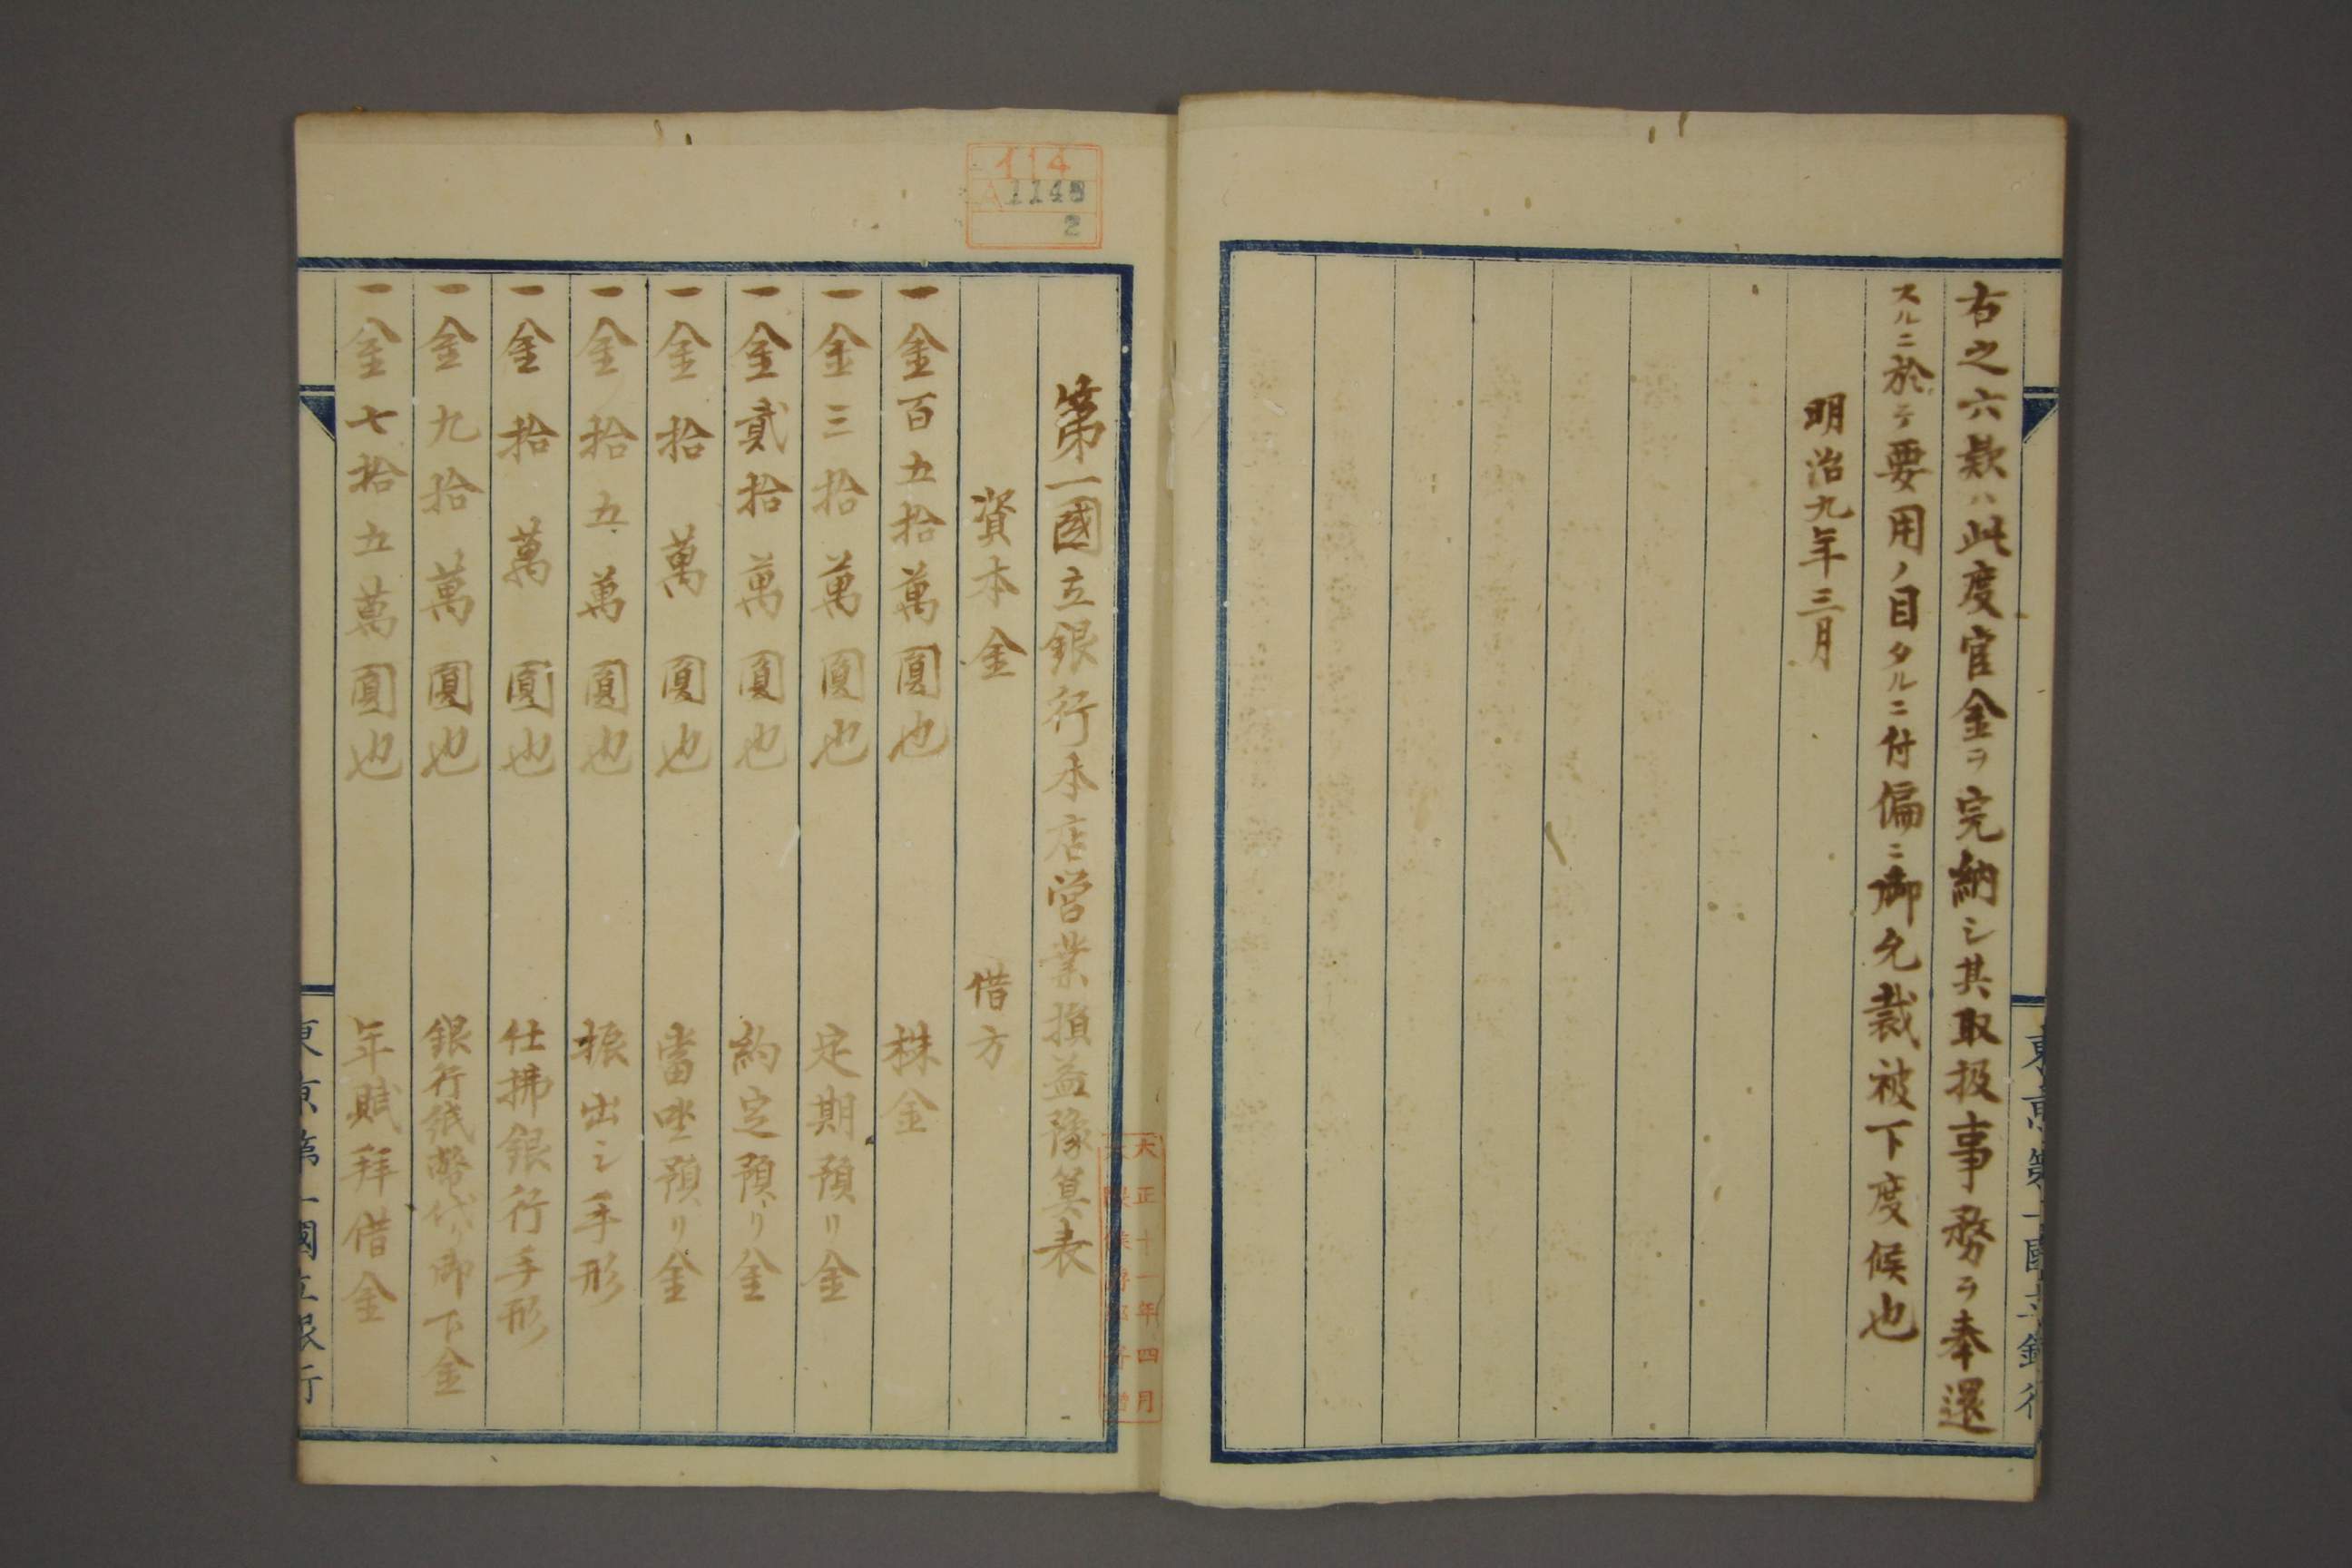 右之六款ハ此度官金ヲ完納シ其取扱事務ヲ奉還
スルニ於テ要用ノ目タルニ付偏ニ御允裁被下度候也
明治九年三月
東京第一國立銀行
114
A1148
2
第一國立銀行本店営業損益豫算表
資本金 借方
一金百五拾萬圓也 株金
一金三拾萬圓也 定期預リ金
一金貳拾萬圓也 約定預リ金
一金拾萬圓也 當坐預リ金
一金拾五萬圓也 振出シ手形
一金拾萬圓也 仕拂銀行手形
一金九拾萬圓也 銀行紙幣代リ御下金
一金七拾五萬圓也 年賦拜借金
東京第一國立銀行
大正十一年四月